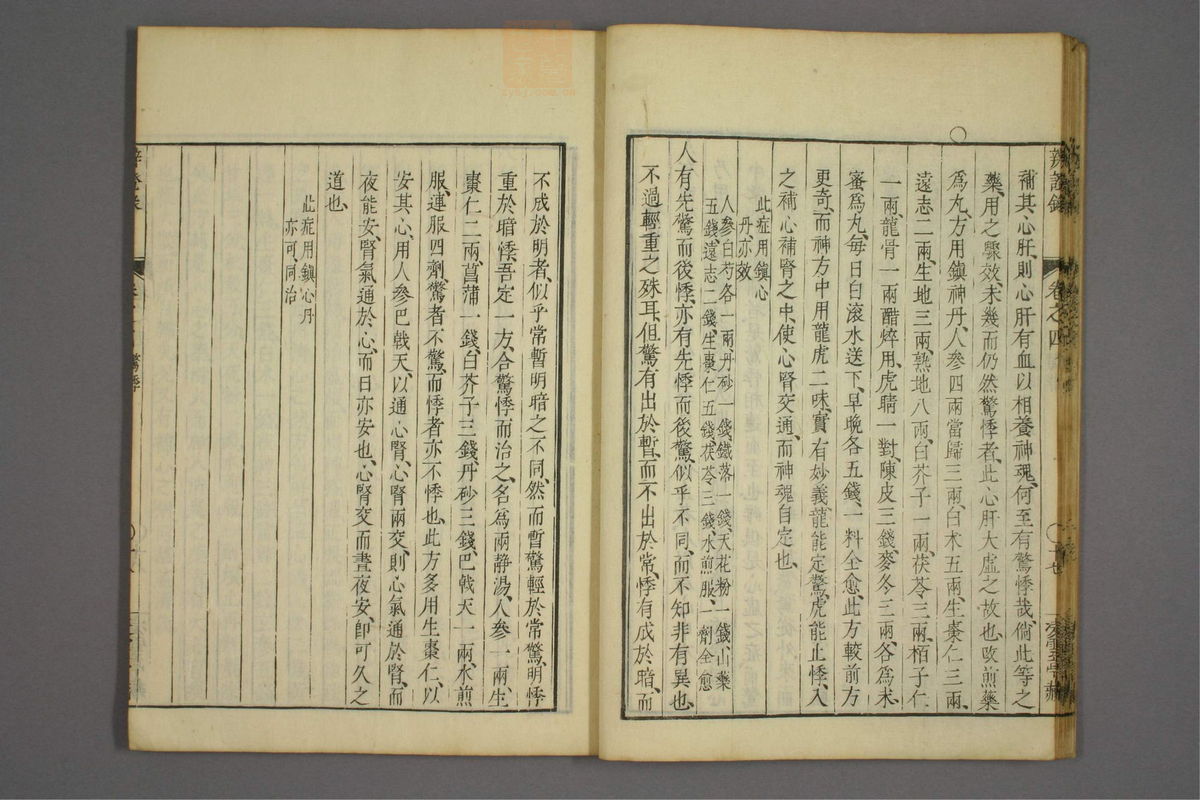 補其心肝、則心肝有血以相養、神魂何至有驚悸哉、倘此等之
藥、用之驟效、未幾而仍然驚悸者、此心肝大虛之故也、改煎藥
爲丸、方用鎮神丹、人參四兩當歸三兩、白术五兩、生棗仁三兩、
遠志二兩、生地三兩、熟地八兩、白芥子一兩、茯苓三兩、栢子仁
一兩、龍骨一兩醋焠用、虎睛一對、陳皮三錢、麥冬三兩、各爲末、
蜜爲丸、每日白滾水送下、早晚各五錢、一料全愈、此方較前方
更奇、而神方中用龍虎二味、實有妙義、龍能定驚、虎能止悸、入
之補心補腎之中、使心腎交通、而神魂自定也、
此症用鎮心
丹亦效
人參白芍各一兩、丹砂一錢、鐵落一錢、天花粉一錢、山藥
五錢、遠志二錢、生棗仁五錢、茯苓三錢、水煎服、一劑全愈
人有先驚而後悸、亦有先悸而後驚、似乎不同、而不知非有異也、
不過輕重之殊耳、但驚有出於暫、而不出於常、悸有成於暗、而
卷之四
不成於明者、似乎常暫明暗之不同、然而暫驚輕於常驚、明悸
重於暗悸、吾定一方、合驚悸而治之、名爲兩靜湯、人參一兩、生
棗仁二兩、菖蒲一錢、白芥子三錢、丹砂三錢、巴戟天一兩、水煎
服、連服四劑、驚者不驚、而悸者亦不悸也、此方多用生棗仁、以
安其心、用人參巴戟天、以通心腎、心腎兩交、則心氣通於腎、而
夜能安、腎氣通於心、而日亦安也、心腎交而晝夜安、卽可久之
道也、
此症用鎮心丹
亦可、同治
驚悸